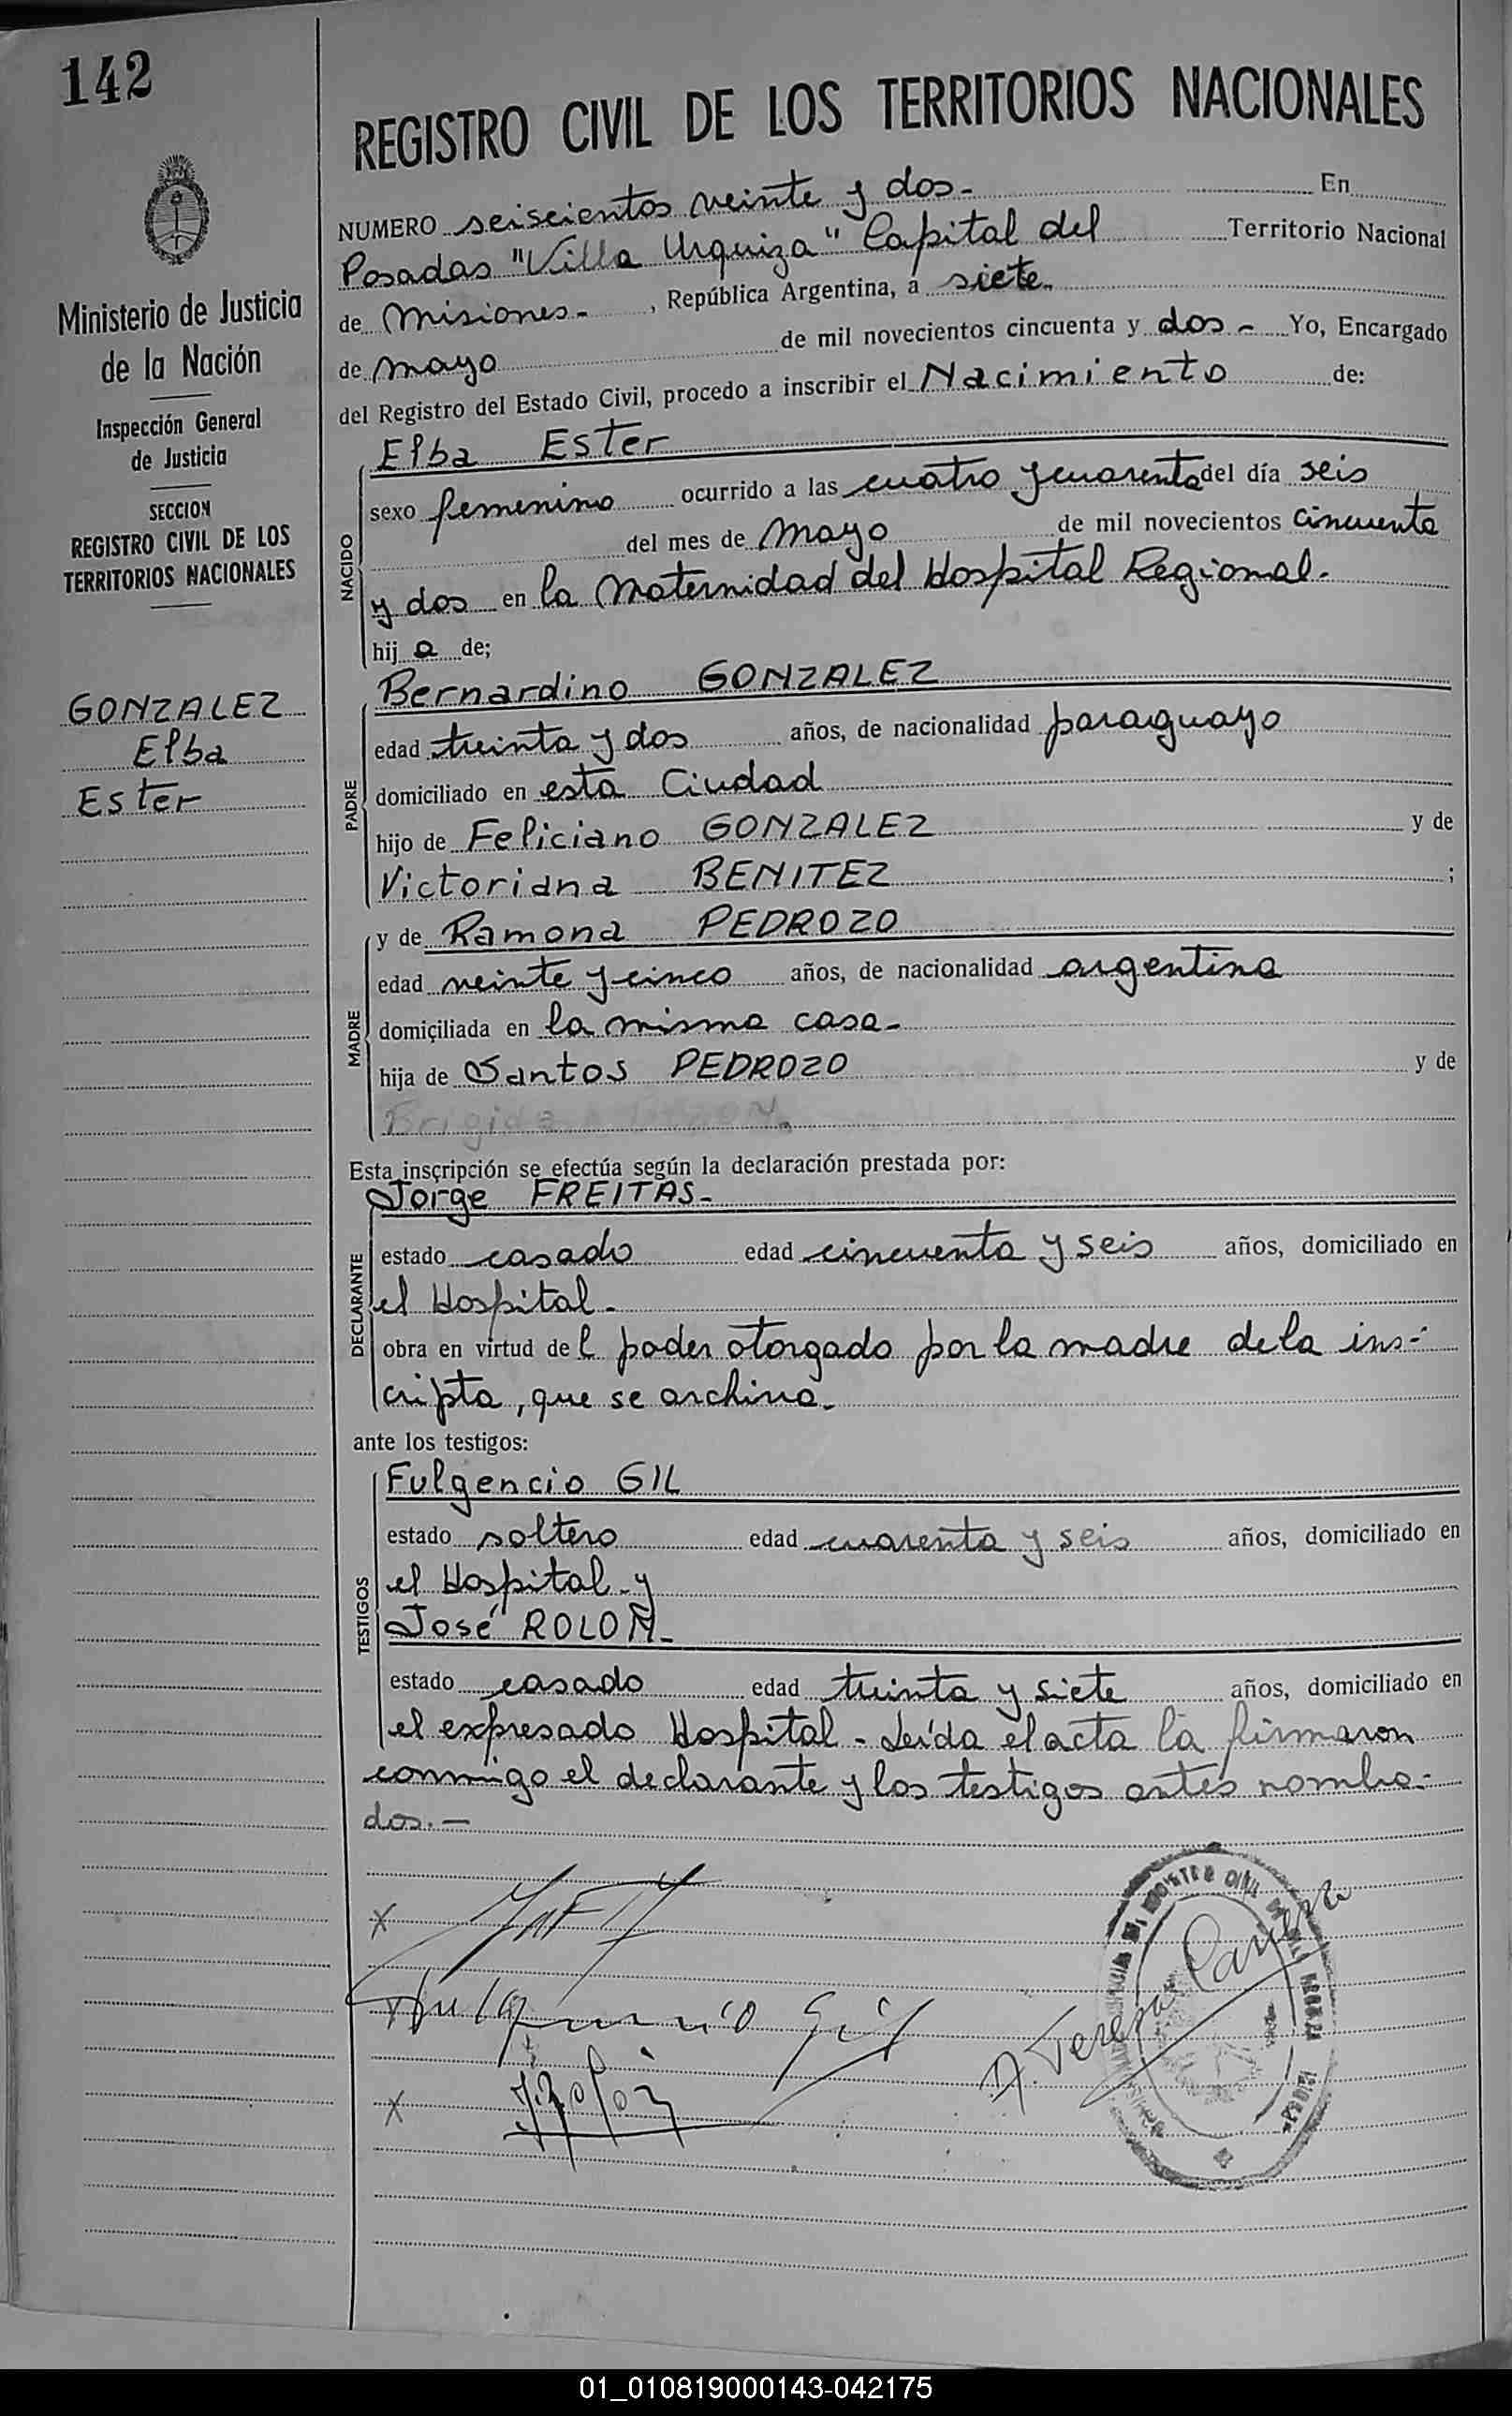 142
REGISTRO CIVIL DE LOS TERRITORIOS NACIONALES
Ministerio de Justicia
de la Nación
Inspección General
de Justicia
SECCION
REGISTRO CIVIL DE LOS
TERRITORIOS NACIONALES
GONZALEZ
Elba
Ester
NUMERO seiscientos veinte y dos- En
Posadas "Villa Urquiza" Capital del Territorio Nacional
de Misiones- , República Argentina, a siete-
de mayo de mil novecientos cincuenta y dos - Yo, Encargado
del Registro del Estado Civil, procedo a inscribir el Nacimiento de:
NACIDO
Elba Ester
sexo femenino ocurrido a las cuatro y cuarenta del día seis
del mes de mayo de mil novecientos cincuenta
y dos en la Maternidad del Hospital Regional.
hij a de;
PADRE
Bernardino GONZALEZ
edad treinta y dos años, de nacionalidad paraguayo
domiciliado en esta Ciudad
hijo de Feliciano GONZALEZ y de
Victoriana BENITEZ ;
MADRE
y de Ramona PEDROZO
edad veinte y cinco años, de nacionalidad argentina
domiciliada en la misma casa-
hija de Santos PEDROZO y de
Brigida
Esta inscripción se efectúa según la declaración prestada por:
DECLARANTE
Jorge FREITAS-
estado casado edad cincuenta y seis años, domiciliado en
el Hospital-
obra en virtud de l poder otorgado por la madre de la ins-
cripta, que se archiva-
ante los testigos:
TESTIGOS
Fulgencio GIL
estado soltero edad cuarenta y seis años, domiciliado en
el Hospital-y
José ROLON-
estado casado edad treinta y siete años, domiciliado en
el expresado Hospital - Leída el acta la firmaron
conmigo el declarante y los testigos antes nombra-
dos.-
x
Fulgencio Gil
x
J. Rolon
01_010819000143-042175